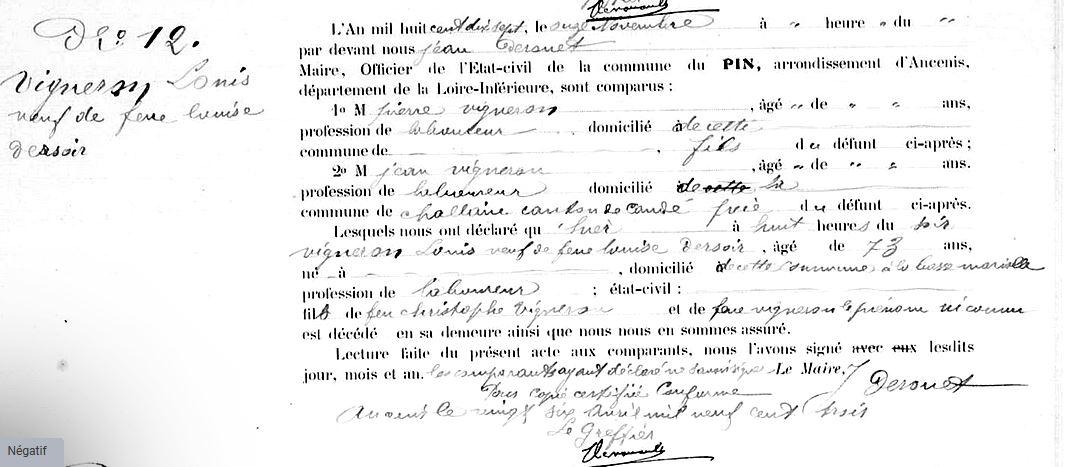 No 12.
Vigneron Louis
veuf de feue louise
Dersoir
L'An mil huit cent dix sept, le onze Novembre à " heure " du "
par devant nous jean Derouet
Maire, Officier de l'Etat-civil de la commune du PIN, arrondissement d'Ancenis,
département de la Loire-Inférieure, sont comparus :
1o M pierre vigneron , âgé " de " " ans,
profession de laboureur domicilié de cette
commune de , fils du défunt ci-après ;
2o M jean vigneron , âgé " de " " ans.
profession de laboureur domicilié de cette la
commune de challain canton de candé frère du défunt ci-après.
Lesquels nous ont déclaré qu'hier à huit heures du soir
vigneron Louis veuf de feue louise Dersoir , âgé de 73 ans,
né à , domicilié de cette commune à la
profession de laboureur ; état-civil :
fils de feu christophe Vigneron et de feue vigneron le prénom inconnu
est décédé en sa demeure ainsi que nous nous en sommes assuré.
Lecture faite du présent acte aux comparants, nous l'avons signé avec eux lesdits
jour, mois et an. les comparants ayant déclaré ne savoir signer Le Maire, Derouet
Pour copie certifiée Conforme
Ancenis le vingt six avril mil neuf cent trois
Le Greffier
Négatif